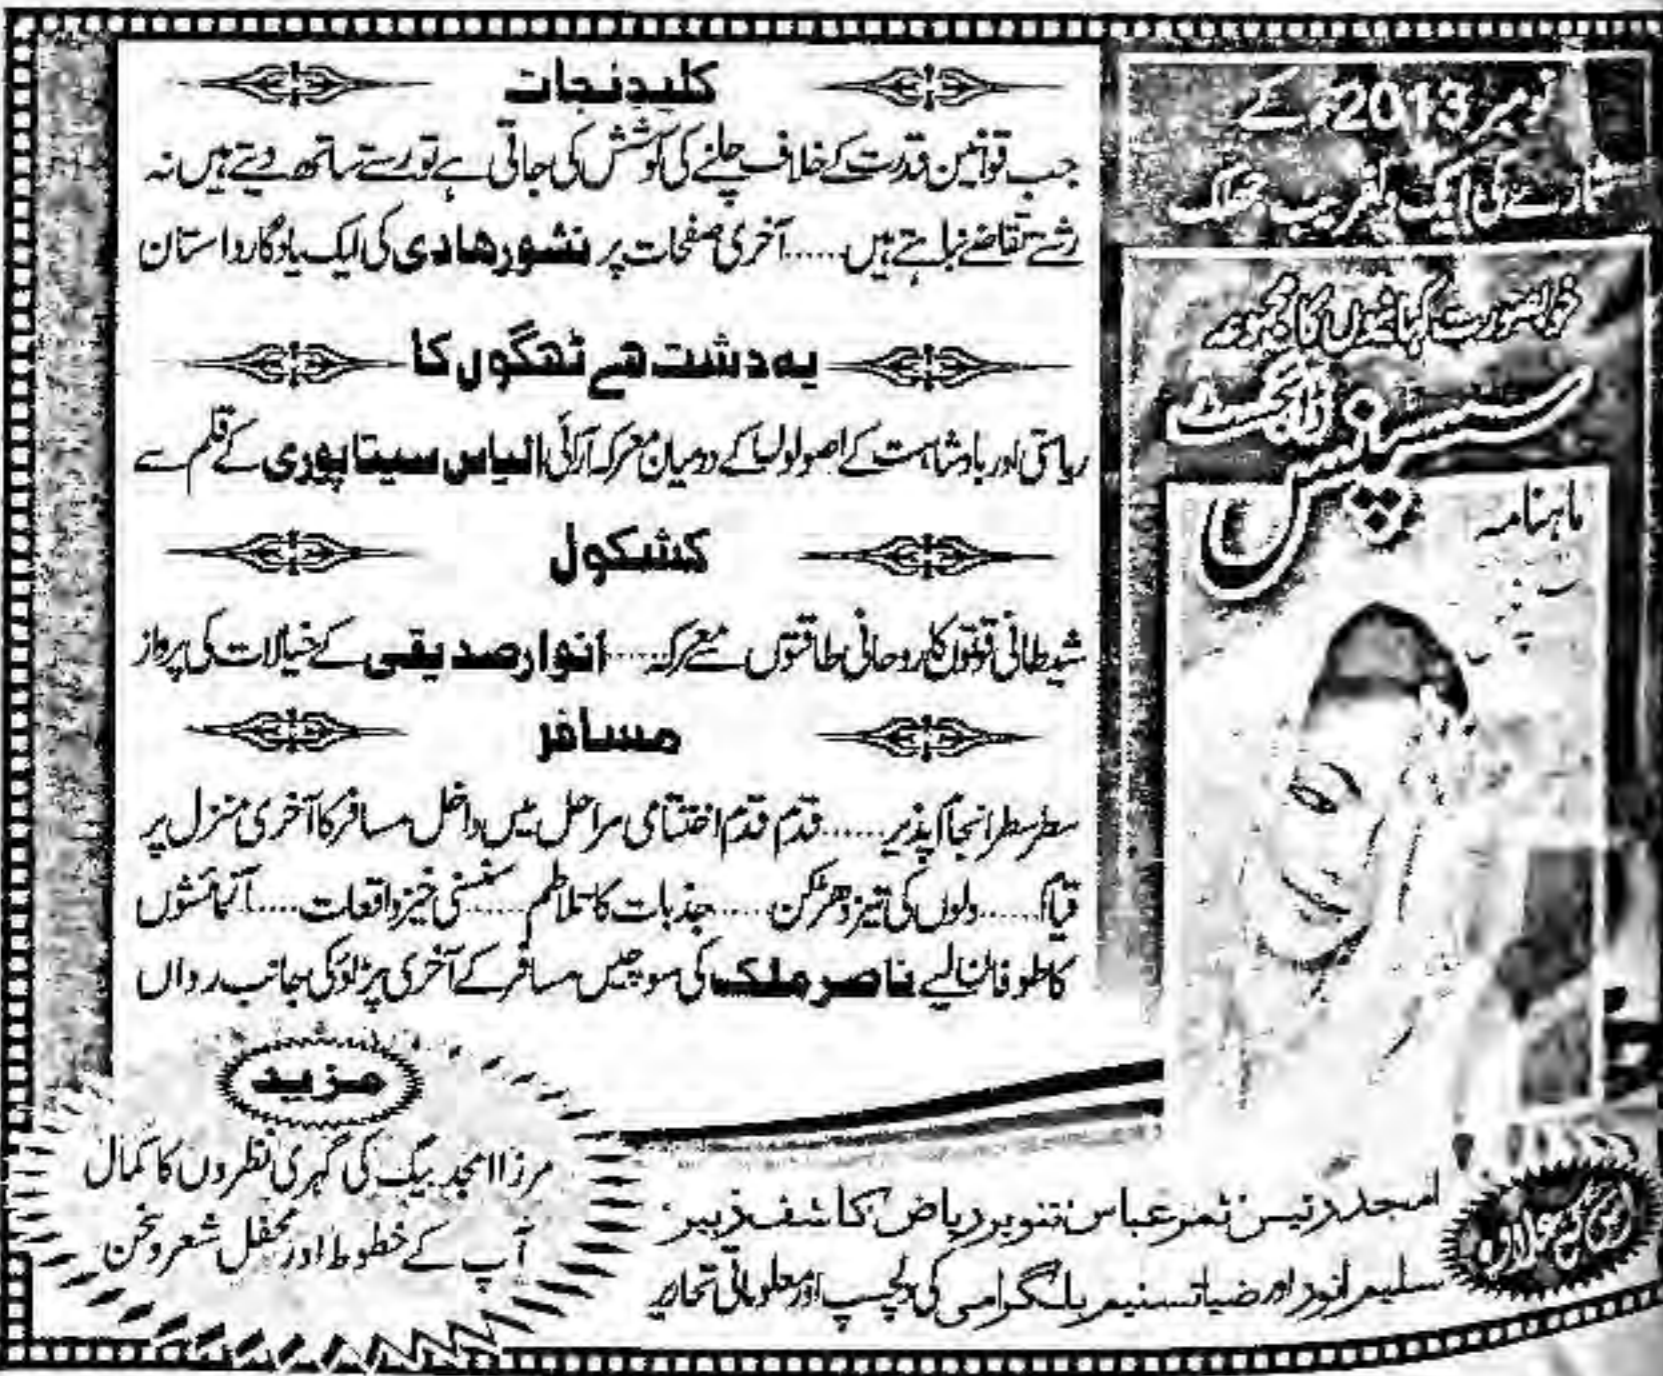 نومبر 2013ء کے
شمارے کی ایک دلفریب جھلک
خوبصورت کہانیوں کا مجموعہ
سسپنس ڈائجسٹ
ماہنامہ
کلیدِ نجات
جب قوانین قدرت کے خلاف چلنے کی کوشش کی جاتی ہے تو رستے ساتھ دیتے ہیں نہ
رشتے تقاضے نباہتے ہیں...... آخری صفحات پر نشور هادی کی ایک یادگار داستان
یه دشت هے ٹهگوں کا
ریاستی اور بادشاہت کے اصولوں کے درمیان معرکہ آرائی الیاس سیتاپوری کے قلم سے
کشکول
شیطانی قوتوں کا روحانی طاقتوں سے معرکہ..... انوار صدیقی کے خیالات کی پرواز
مسافر
سطر سطر انجام پذیر...... قدم قدم اختتامی مراحل میں داخل مسافر کا آخری منزل پر
قیام...... دلوں کی تیز دھڑکن..... جذبات کا تلاطم...... سنسنی خیز واقعات..... آزمائشوں
کا طوفان لیے ناصر ملک کی سوچیں مسافر کے آخری پڑاؤ کی جانب رواں
مزید
مرزا امجد بیگ کی گہری نظروں کا کمال
آپ کے خطوط اور محفل شعر و سخن
اس کے علاوہ
امجد رئیس، ثمر عباس، تنویر ریاض، کاشف زبیر،
سلیم انور اور ضیا تسنیم بلگرامی کی دلچسپ اور معلوماتی تحاریر